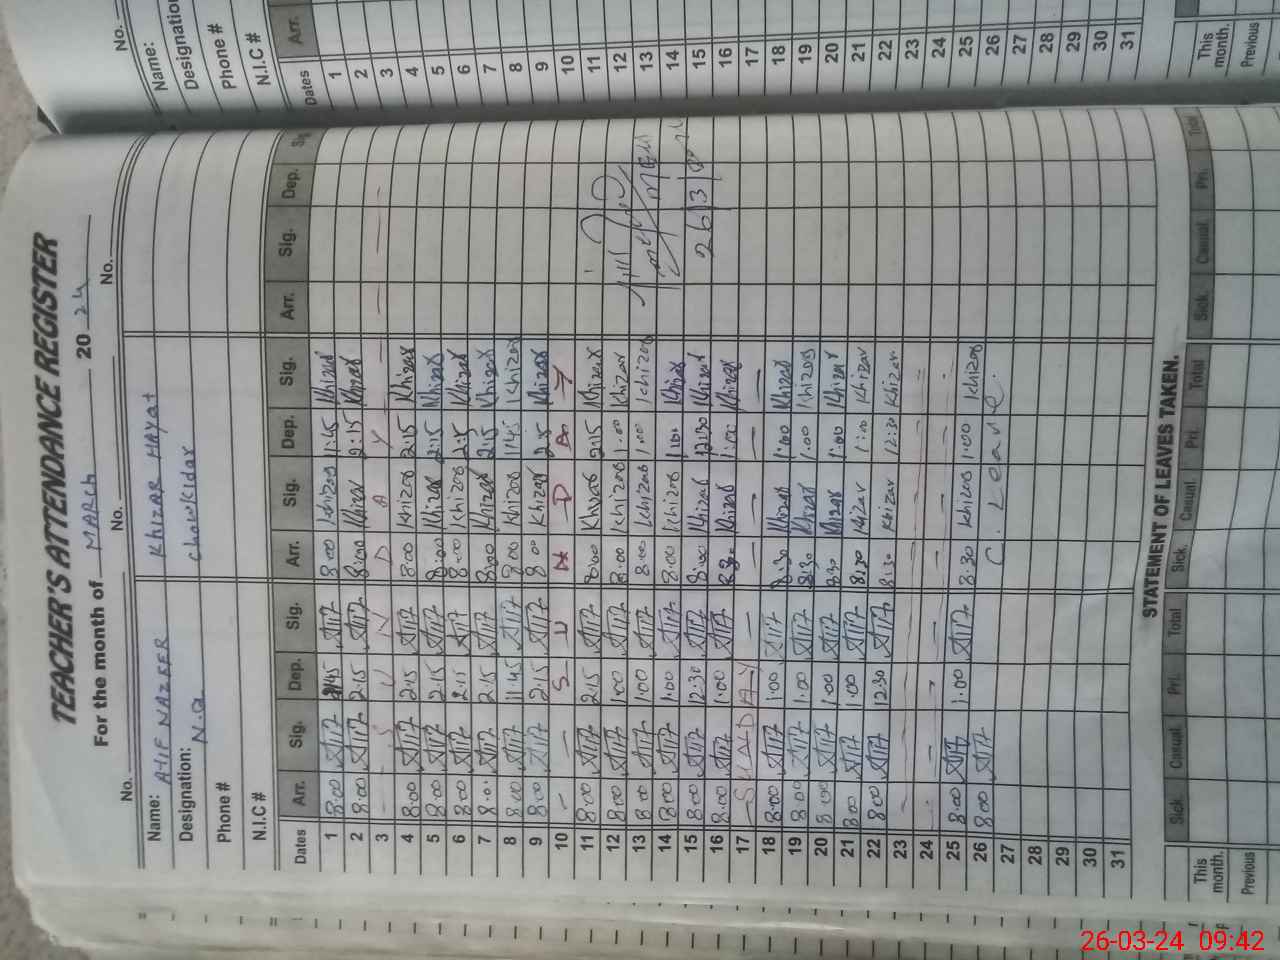 TEACHER'S ATTENDANCE REGISTER
For the month of MARCH 20 24
No. No. No.
Name: Atif NAZEER Khizar HAYAT
Designation: N.Q chowkidar
Phone #
N.I.C #
Dates Arr. Sig. Dep. Sig. Arr. Sig. Dep. Sig. Arr. Sig. Dep.
1 8:00 Atif Atif 8:00 Khizar 1:45 Khizar
2 8:00 Atif 2:15 Atif 8:00 Khizar 2:15 Khizar
3 S U N D A Y
4 8:00 Atif 2:15 Atif 8:00 Khizar 2:15 Khizar
5 8:00 Atif 2:15 Atif 8:00 Khizar 2:15 Khizar
6 8:00 Atif 2:15 Atif 8:00 Khizar Khizar
7 8:0 Atif 2:15 Atif 8:00 Khizar 2:15 Khizar
8 8:00 Atif 11:45 Atif 8:00 Khizar 1145 Khizar
9 8:00 Atif 2:15 Atif 8:00 Khizar Khizar
10 S U N D A Y
11 8:00 Atif 2:15 Atif 8:00 Khizar 2:15 Khizar
12 8:00 Atif 1:00 Atif 8:00 Khizar 1:00 Khizar
13 8:00 Atif 1:00 Atif 8:00 Khizar 1:00 Khizar
14 8:00 Atif 1:00 Atif 8:00 Khizar 1:00 Khizar
15 8:00 Atif 12:30 Atif 8:00 Khizar 12:30 Khizar 26/3/
16 8:00 Atif 1:00 Atif 8:30 Khizar 1:00 Khizar
17 SUNDAY
18 8:00 Atif 1:00 Atif 8:30 Khizar 1:00 Khizar
19 8:00 Atif 1:00 Atif 8:30 Khizar 1:00 Khizar
20 8:00 Atif 1:00 Atif 8:30 Khizar 1:00 Khizar
21 8:00 Atif 1:00 Atif 8:30 Khizar 1:00 Khizar
22 8:00 Atif 12:30 Atif 8:30 Khizar 12:30 Khizar
23
24
25 8:00 Atif 1:00 Atif 8:30 Khizar 1:00 Khizar
26 8:00 Atif C. Leave
27
28
29
30
31
STATEMENT OF LEAVES TAKEN.
Sick. Casual. Pri. Total Sick. Casual. Pri. Total Sick. Casual. Pri. Total
This month.
Previous
No.
Name:
Designation
Phone #
N.I.C #
Dates Arr.
1
2
3
4
5
6
7
8
9
10
11
12
13
14
15
16
17
18
19
20
21
22
23
24
25
26
27
28
29
30
31
This month.
Previous
26-03-24 09:42